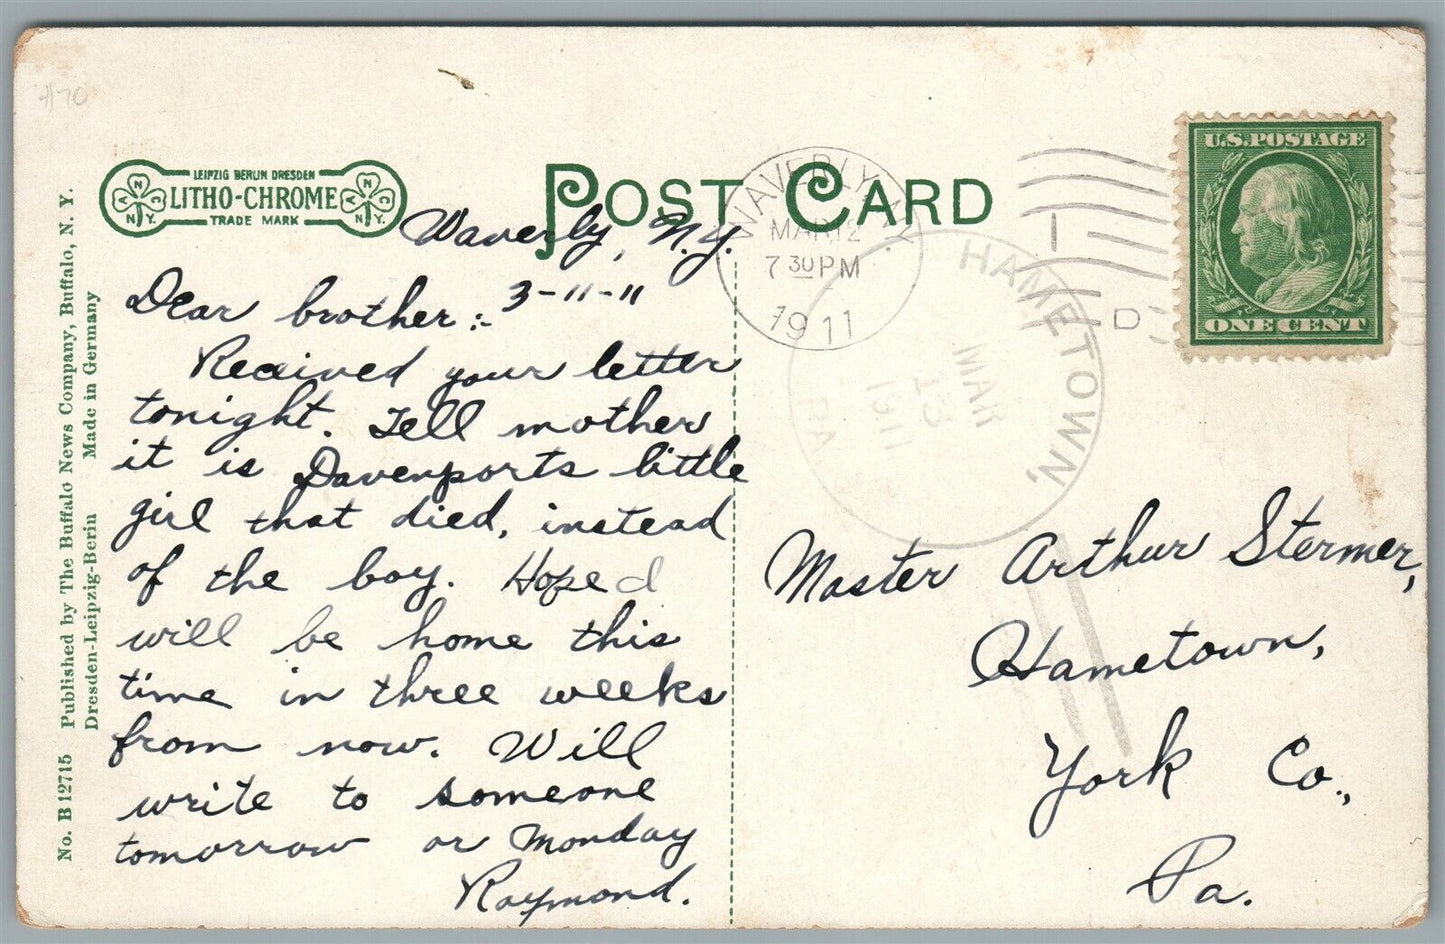 #70
LEIPZIG BERLIN DRESDEN
LITHO-CHROME
TRADE MARK
ANCNY.
ANCNY.
POST CARD
WAVERLY N.Y.
MAR 12
7 30 PM
1911
D
U.S. POSTAGE
ONE CENT
HAMETOWN,
MAR
13
1911
PA
No. B 12715 Published by The Buffalo News Company, Buffalo, N. Y.
Dresden-Leipzig-Berin Made in Germany
Waverly, N.Y.
3-11-11
Dear brother:-
Received your letter
tonight. Tell mother
it is Davenports little
girl that died, instead
of the boy. Hope I
will be home this
time in three weeks
from now. Will
write to someone
tomorrow or Monday
Raymond.
Master Arthur Stermer,
Hametown,
York Co.,
Pa.